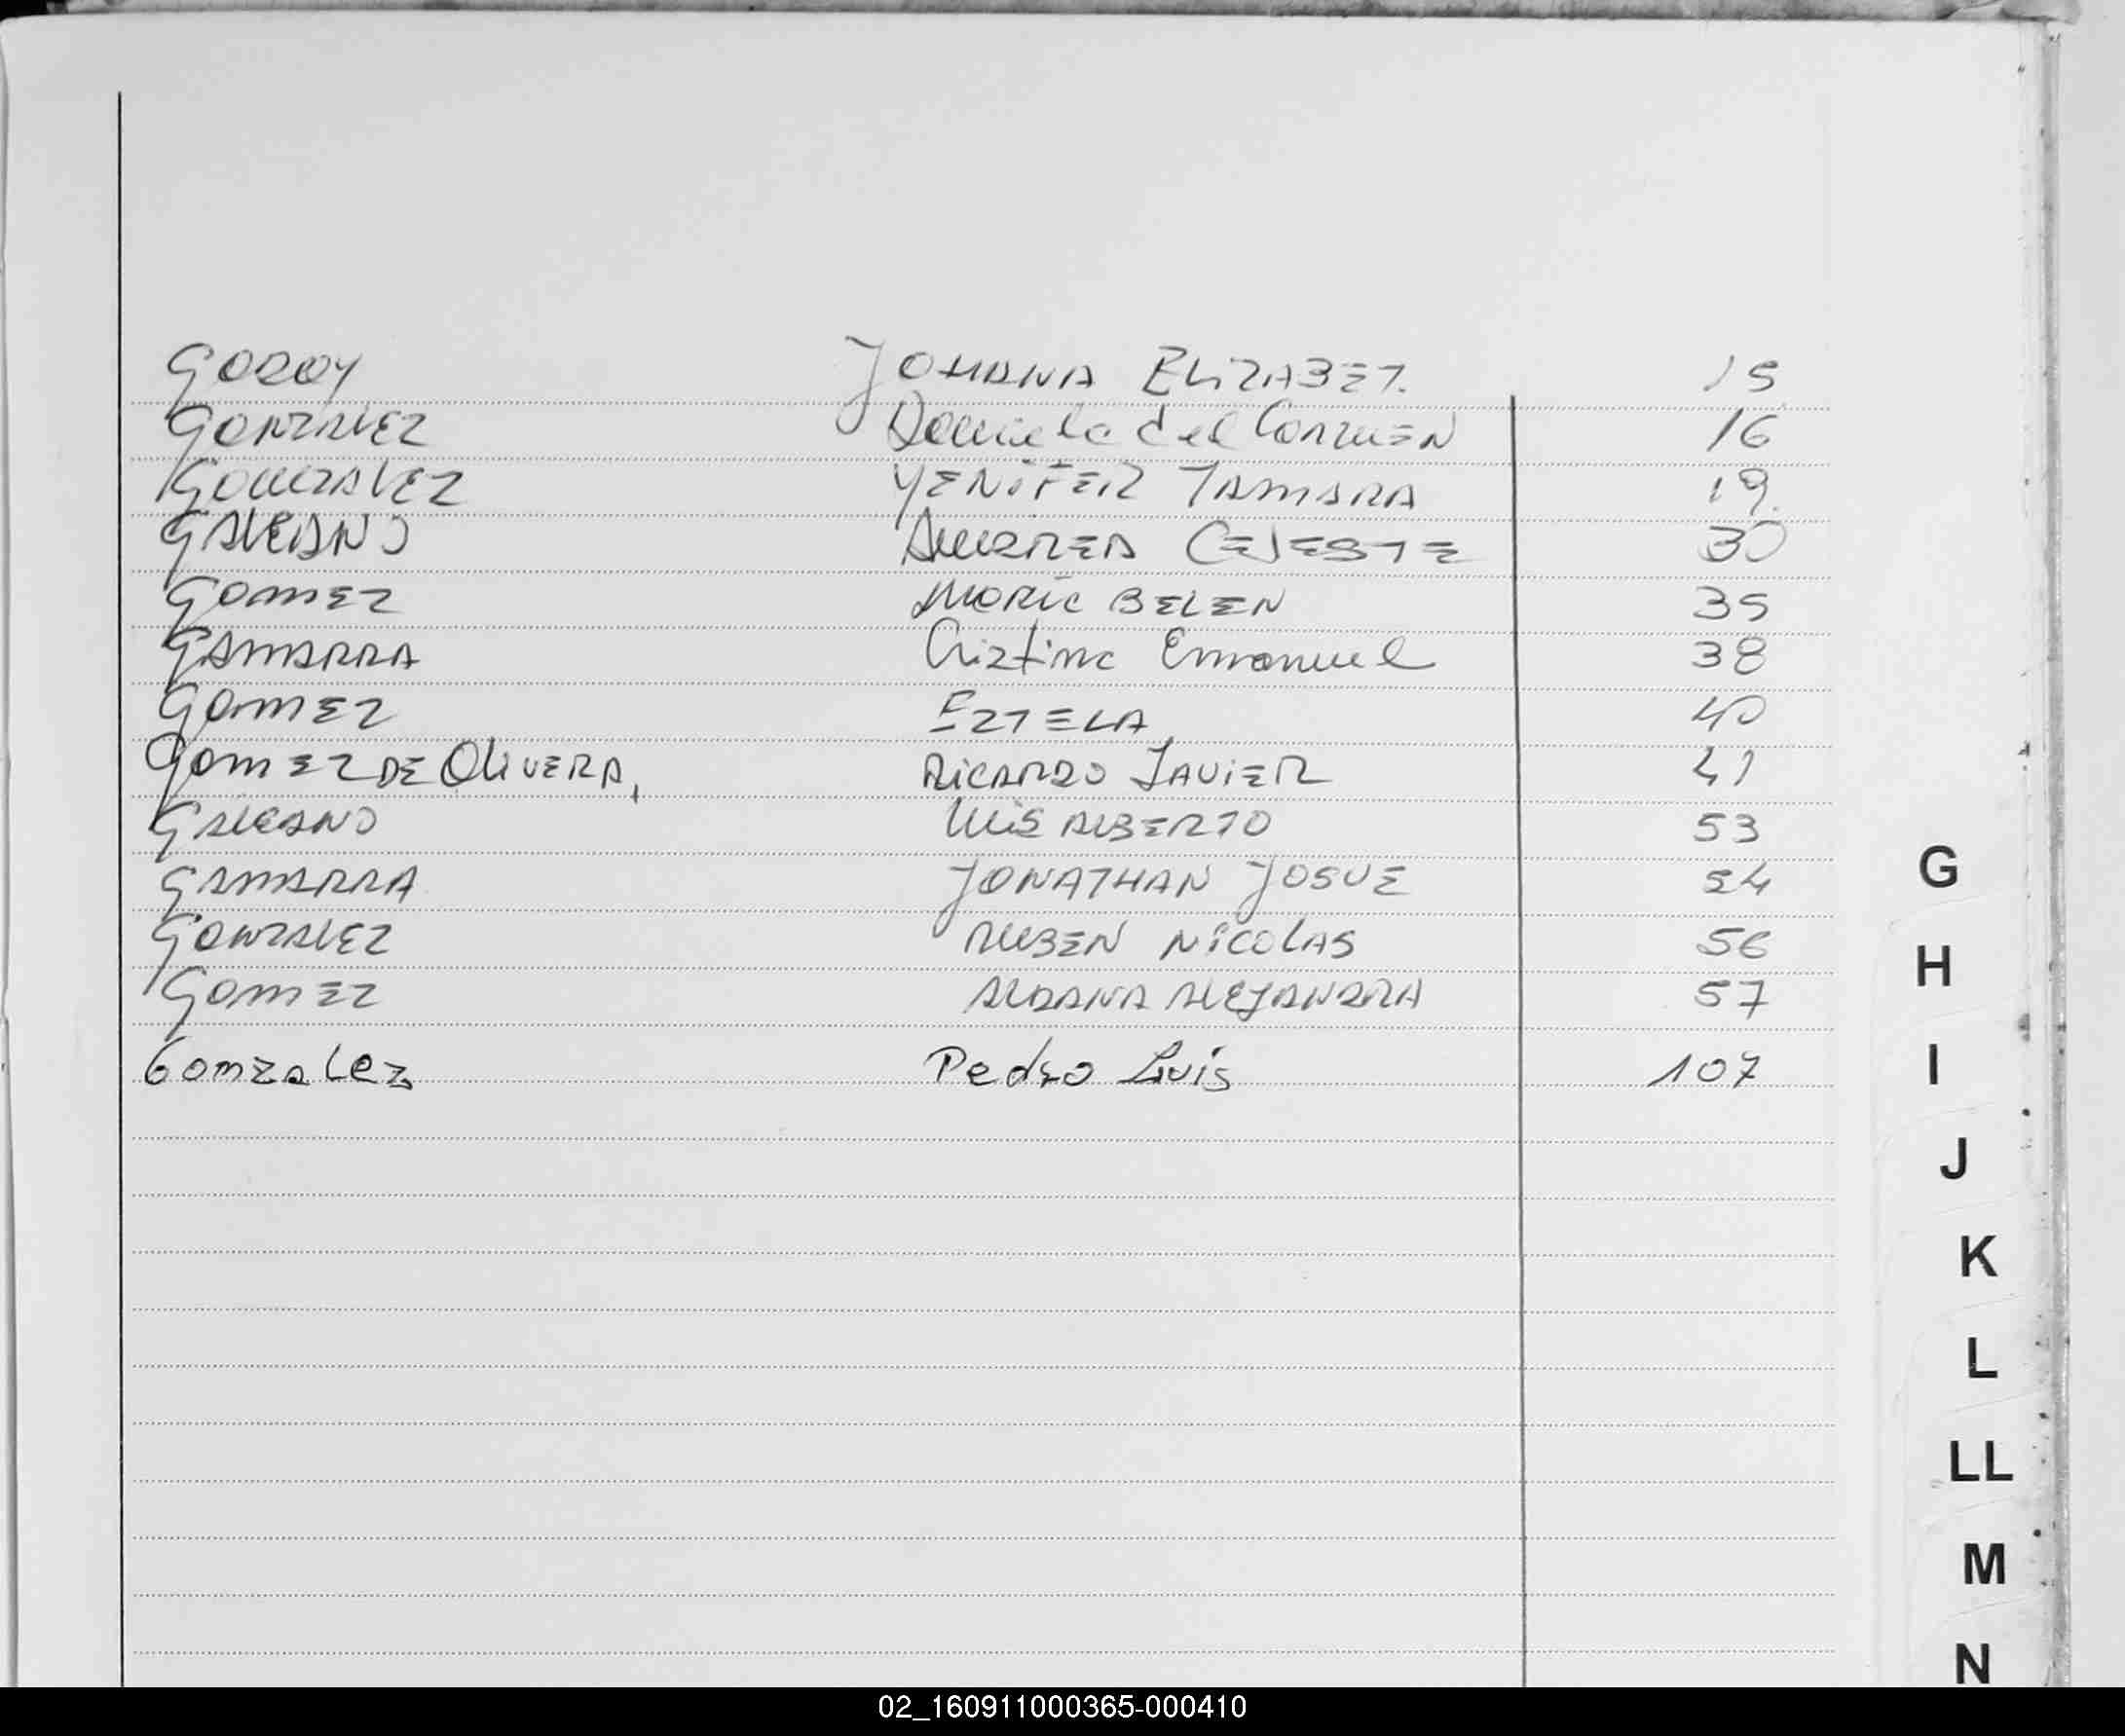 GODOY JOHANA ELIZABET. 15
GONZALEZ Daniela del CARMEN 16
GONZALEZ YENIFER TAMARA 19.
GALEANO ANDREA CELESTE 30
GOMEZ MARIA BELEN 35
GAMARRA Criztina Emanuel 38
GOMEZ EZTELA 40
GOMEZ DE OLIVERA, RICARDO JAVIER 41
GALEANO LUIS ALBERTO 53
GAMARRA JONATHAN JOSUE 54
GONZALEZ RUBEN NICOLAS 56
GOMEZ ALDANA ALEJANDRA 57
Gonzalez Pedro Luis 107
G
H
I
J
K
L
LL
M
N
02_160911000365-000410